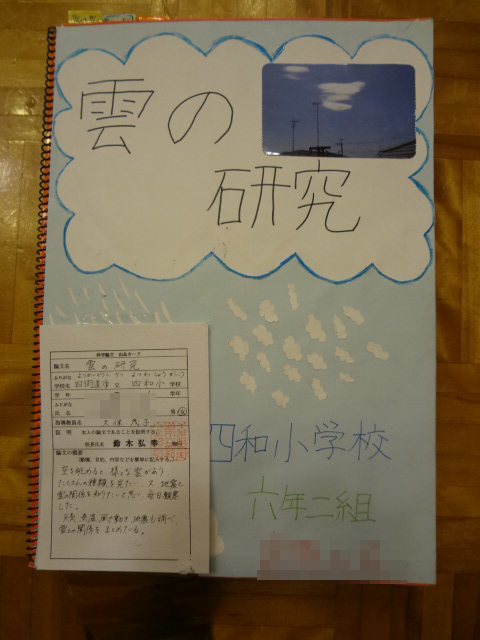 雲の
研究
科学論文 出品カード
論文名 雲の研究
ふりがな
学校名 四街道市 立 四和小 学校
学年 学年
ふりがな
氏名 男・女
指導教員名
証明 本人の論文であることを証明する
校長氏名 鈴木弘幸
論文の概要
(動機、目的、内容などを簡単に記入する)
空を眺めると、様々な雲があり、
たくさんの種類を見たい。又、地震と
雲の関係を知りたいと思い、毎日観察
した。
天気、気温、風や動き、地震も調べ、
雲との関係をまとめている。
四和小学校
六年二組